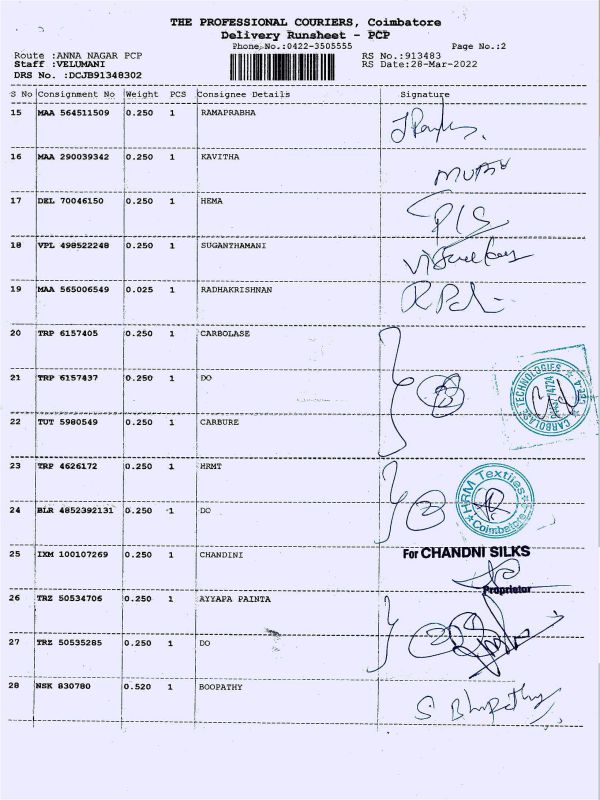 THE PROFESSIONAL COURIERS, Coimbatore
Delivery Runsheet - PCP
Phone No.:0422-3505555 Page No.:2
Route :ANNA NAGAR PCP RS No.:913483
Staff :VELUMANI RS Date:28-Mar-2022
DRS No. :DCJB91348302
S No Consignment No Weight PCS Consignee Details Signature
15 MAA 564511509 0.250 1 RAMAPRABHA
16 MAA 290039342 0.250 1 KAVITHA
17 DEL 70046150 0.250 1 HEMA
18 VPL 498522248 0.250 1 SUGANTHAMANI
19 MAA 565006549 0.025 1 RADHAKRISHNAN
20 TRP 6157405 0.250 1 CARBOLASE
21 TRP 6157437 0.250 1 DO
CARBOLASE TECHNOLOGIES
22 TUT 5980549 0.250 1 CARBURE
23 TRP 4626172 0.250 1 HRMT
HRM Textiles
Coimbatore
24 BLR 4852392131 0.250 1 DO
25 IXM 100107269 0.250 1 CHANDINI For CHANDNI SILKS
Proprietor
26 TRZ 50534706 0.250 1 AYYAPA PAINTA
27 TRZ 50535285 0.250 1 DO
28 NSK 830780 0.520 1 BOOPATHY S. Bhopathy